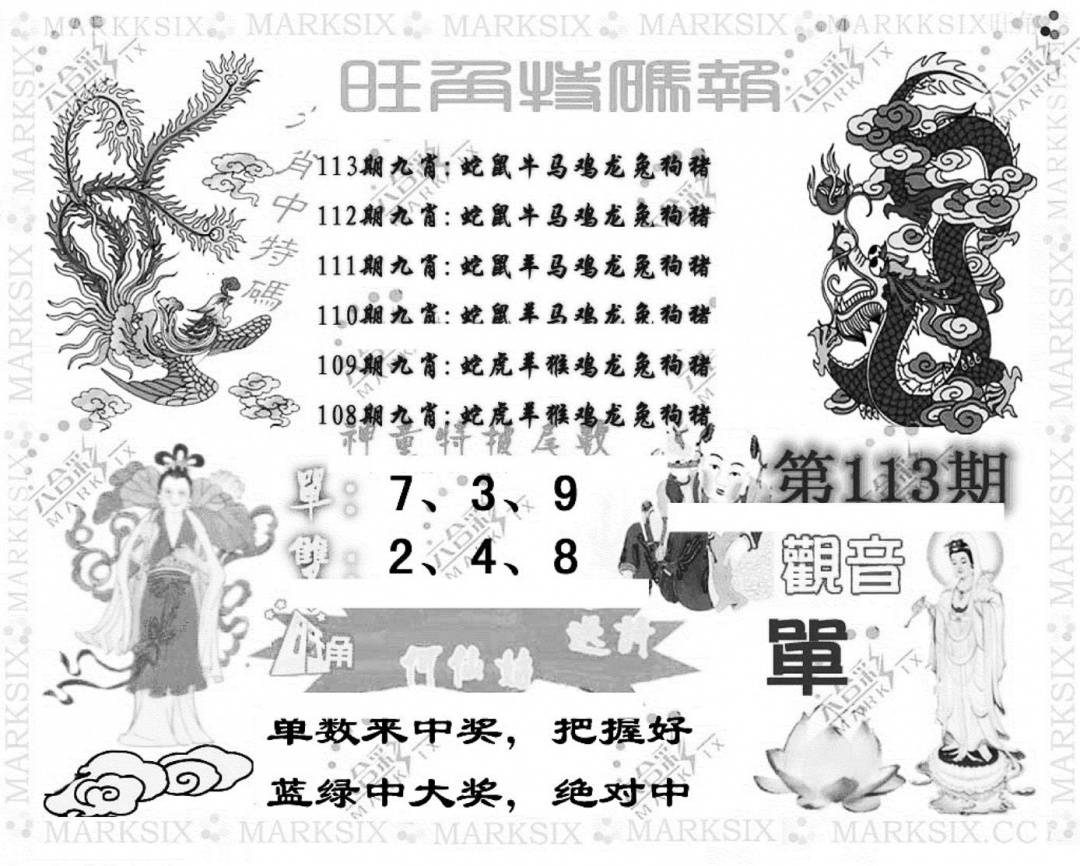 MARKSIX MARKSIX MARKSIX MARKSIX MARKKSIX
旺角特碼報
肖中特碼
113期九肖:蛇鼠牛马鸡龙兔狗猪
112期九肖:蛇鼠牛马鸡龙兔狗猪
111期九肖:蛇鼠羊马鸡龙兔狗猪
110期九肖:蛇鼠羊马鸡龙兔狗猪
109期九肖:蛇虎羊猴鸡龙兔狗猪
108期九肖:蛇虎羊猴鸡龙兔狗猪
神童特搜尾數
單: 7、3、9
雙: 2、4、8
第113期
觀音
單
何仙姑
单数来中奖，把握好
蓝绿中大奖，绝对中
MARKSIX MARKSIX MARKSIX MARKSIX MARKSIX.CC